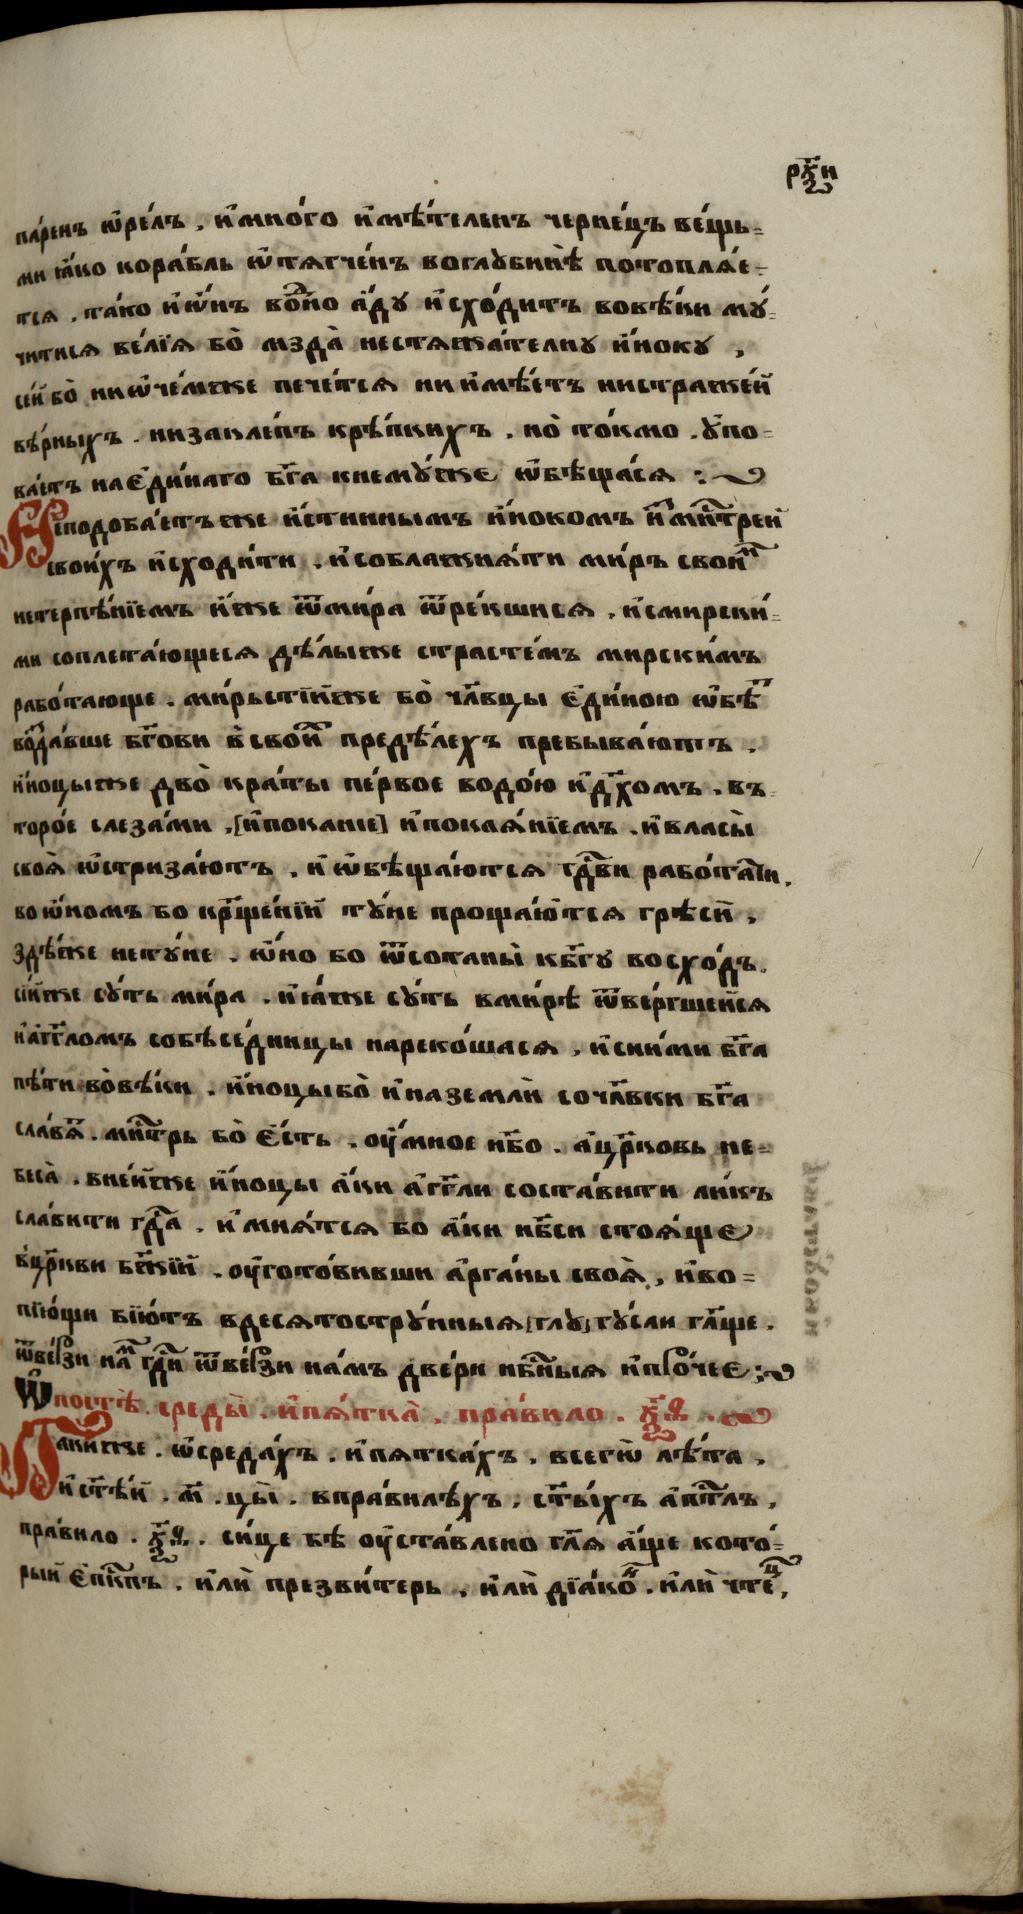 рк҃и
па́ренъ ѻ҆ре́лъ , и҆мно́го и҆мѣ́теленъ черне́цъ ве́щь=
ми ꙗ҆́ко кора́бль ѡ҆тѧгче́нъ воглꙋбинѣ̀ потоплѧ́е=
тсѧ . та́ко и҆ѻ҆́нъ а҆́дꙋ и҆схо́дитъ вовѣ́ки мꙋ́=
читисѧ ве́лїѧ бо̀ мзда̀ нестѧжа́телнꙋ и҆́нокꙋ ,
се́й бо̀ ниѡ҆че́мже пече́тсѧ ни и҆мѣ́етъ нистраже́й
вѣ́рныхъ . низакле́пъ крѣ́пкихъ . но̀ то́кмо . ᲂу҆по=
ва́етъ нає҆ди́наго бг҃а кнемꙋ́же ѡ҆бѣща́сѧ :
Неподоба́етъ же и҆́стиннымъ и҆́нокомъ и҆мнⷭ҇трей
свои́хъ и҆сходи́ти . и҆соблажнѧ́ти ми́ръ свои́мⷨ
нетерпѣ́нїемъ и҆́же ѿми́ра ѿре́кшисѧ . и҆смирски́=
ми соплета́ющесѧ дѣ́лыже страсте́мъ мирски́мъ
рабо́тающе . ми́рьстїи́же бо̀ чл҃вцы є҆ди́ною ѡ҆бѣⷮ
возда́вше бг҃ови в свои́ⷯ предѣ́лехъ пребыва́ютъ .
и҆́ноцыже дво̀ кра́ты пе́рвое водо́ю и҆дх҃омъ . въ=
торо́е слеза́ми ,[и҆покание] и҆покаѧ́нїемъ . и҆власы̀
своѧ̀ ѡ҆стриза́ютъ . и҆ ѡ҆бѣща́ютсѧ гдⷭ҇ви рабо́тати .
во ѻ҆́номъ бо крⷭ҇ще́нїи тꙋ́не проща́ютсѧ грѣси̑ ,
здѣ́же нетꙋ́не . ѻ҆́но бо ѿсотаны̀ кбг҃ꙋ восхо́дъ .
сі́иже сꙋ́ть ми́ра . и҆ꙗ҆́же сꙋ́ть вми́рѣ ѿве́ргшеисѧ
и҆а҆́гг҃ломъ собѣсе́дницы нареко́шасѧ , и҆сни́ми бг҃а
пѣ́ти вовѣ́ки . и҆́ноцыбо̀ и҆наземлѝ сочл҃вки бг҃а
сла́вѧⷮ . мнⷭ҇трь бо̀ є҆́сть . ᲂу҆́мное нб҃о . а҆цр҃ковь не=
беса̀ . вне́йже и҆́ноцы а҆́ки а҆́гг҃ли соста́вити ли́къ
сла́вити гдⷭ҇а . и҆ мнѧ́тсѧ бо а҆́ки нб҃си стоѧ́ще
вцр҃кви бж҃їй . ᲂу҆гото́вивши а҆рга́ны своѧ̀ , и҆во=
пїю́щи бїю́тъ вдесѧтострꙋ́нныѧ [глꙋ] гꙋ́сли гл҃ще .
ѿве́рзи на́мⷨ гдⷭ҇и ѿве́рзи на́мъ две́ри нбⷭ҇ныѧ и҆про́чее :
Ѡ҆постѣ̀ . среды̀ . и҆пѧ́тка̀ , пра́вило . ѯ҃ѳ .
Та́киже . ѡ҆среда́хъ . и҆пѧтка́хъ . всегѡ̀ лѣ́та ,
и҆ст҃ѣй . м҃ . цы̀ . впра́вилѣхъ . ст҃ы́хъ а҆пⷭ҇лъ ,
пра́вило . ѯ҃ѳ . си́це бѣ̀ ᲂу҆ста́влено гл҃ѧ а҆́ще кото́=
рый є҆пⷭ҇кпъ . и҆лѝ презви́терь , и҆лѝ дїа́коⷩ . и҆лѝ чте́ⷰ ,